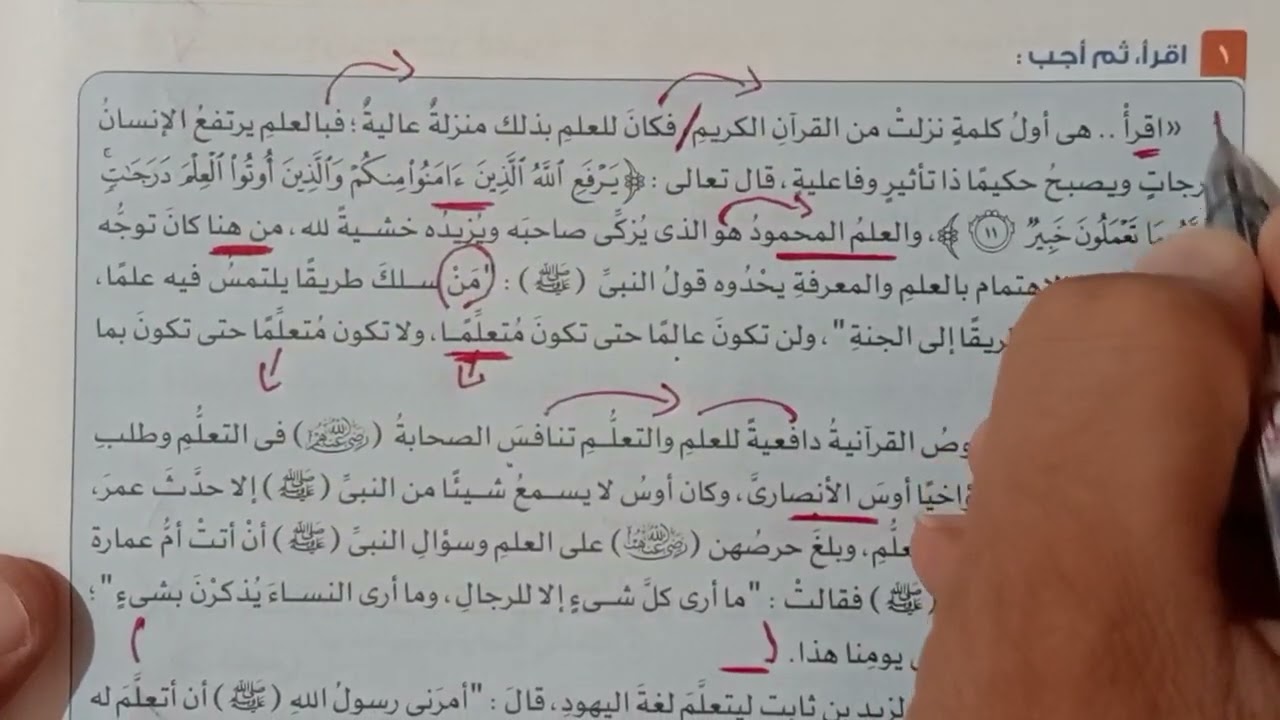 ١ اقرأ، ثم أجب :
«اقرأْ .. هى أولُ كلمةٍ نزلتْ من القرآنِ الكريمِ، فكانَ للعلمِ بذلك منزلةٌ عاليةٌ؛ فبالعلمِ يرتفعُ الإنسانُ
رجاتٍ ويصبحُ حكيمًا ذا تأثيرٍ وفاعليةٍ، قال تعالى : ﴿يَرْفَعِ ٱللَّهُ ٱلَّذِينَ ءَامَنُوا۟ مِنكُمْ وَٱلَّذِينَ أُوتُوا۟ ٱلْعِلْمَ دَرَجَـٰتٍۚ
بِمَا تَعْمَلُونَ خَبِيرٌ ١١﴾، والعلمُ المحمودُ هو الذى يُزكِّى صاحبَه ويُزِيدُه خشيةً لله، من هنا كانَ توجُّه
الاهتمام بالعلمِ والمعرفةِ يحْدُوه قولُ النبىِّ (ﷺ) : "مَنْ سلكَ طريقًا يلتمسُ فيه علمًا،
ريقًا إلى الجنةِ"، ولن تكونَ عالمًا حتى تكونَ مُتعلِّمًا، ولا تكون مُتعلِّمًا حتى تكونَ بما
وصُ القرآنيةُ دافعيةً للعلمِ والتعلُّمِ تنافسَ الصحابةُ (رضي الله عنهم) فى التعلُّمِ وطلبِ
اخيًا أوسَ الأنصارىَّ، وكان أوسُ لا يسمعُ شيئًا من النبىِّ (ﷺ) إلا حدَّثَ عمرَ،
علُّمِ، وبلغَ حرصُهن (رضي الله عنهن) على العلمِ وسؤالِ النبىِّ (ﷺ) أنْ أتتْ أمُّ عمارة
(ﷺ) فقالتْ : "ما أرى كلَّ شىءٍ إلا للرجالِ، وما أرى النساءَ يُذكرْنَ بشىءٍ"؛
يومِنا هذا.
لزيد بن ثابت ليتعلَّمَ لغةَ اليهودِ، قالَ : "أمرَنى رسولُ اللهِ (ﷺ) أن أتعلَّمَ له